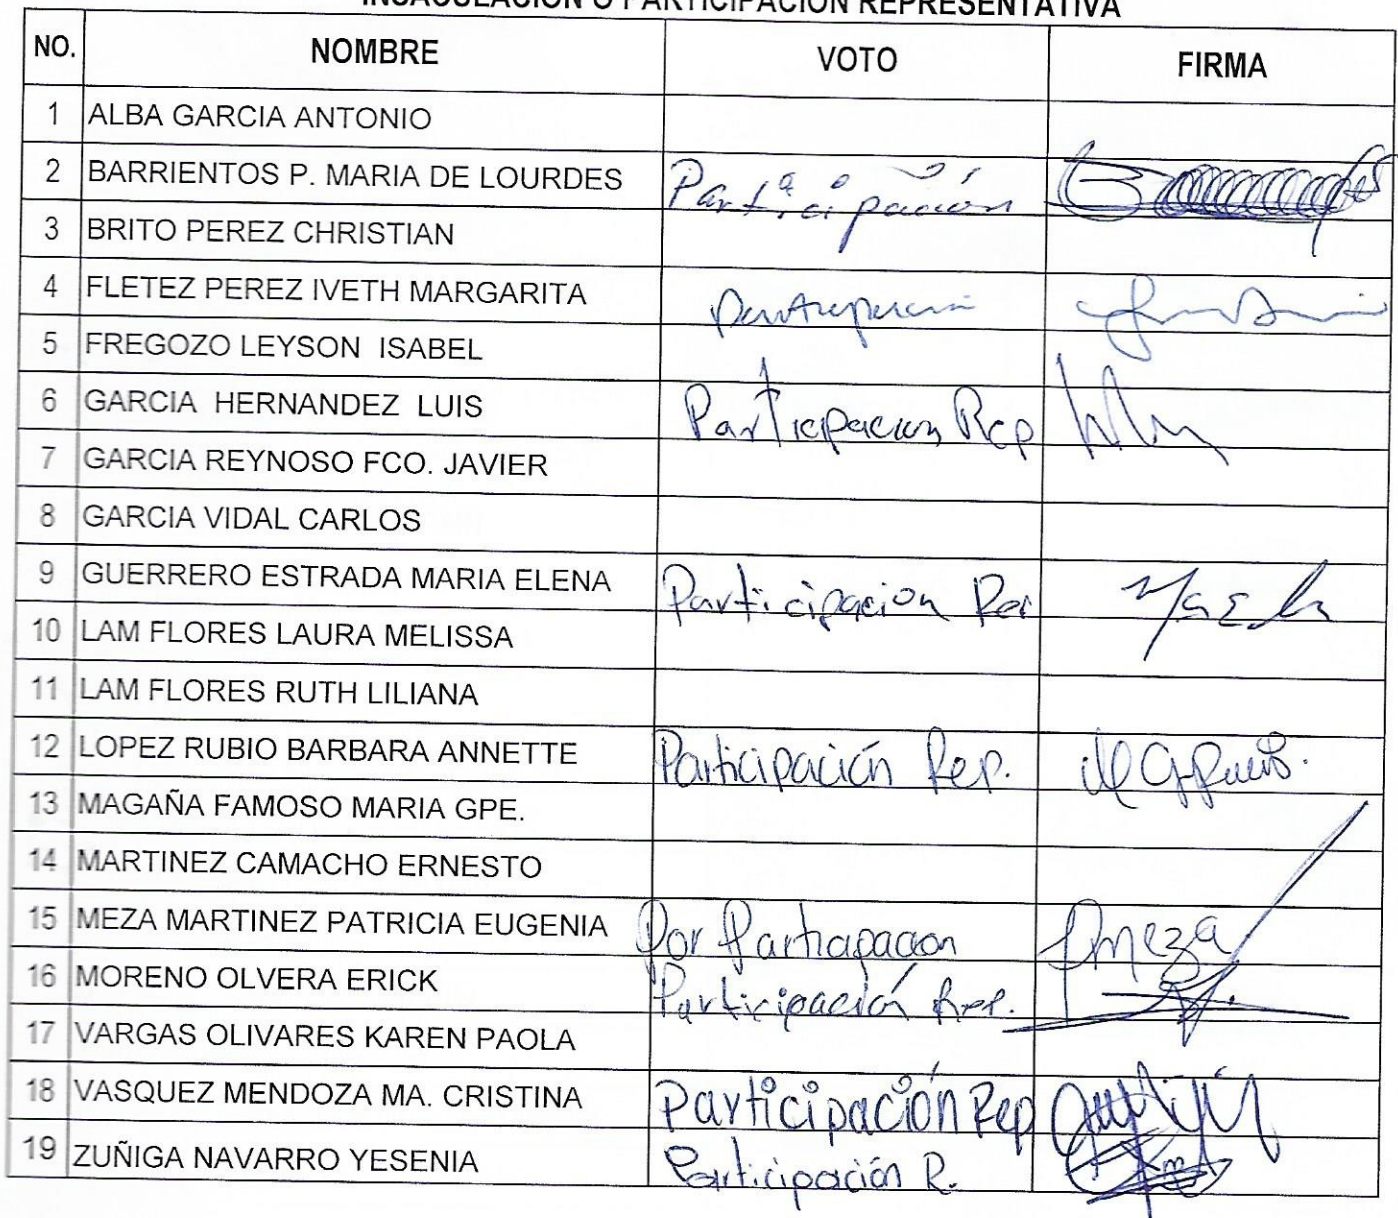 INSACULACION O PARTICIPACION REPRESENTATIVA
NO. NOMBRE VOTO FIRMA
1 ALBA GARCIA ANTONIO
2 BARRIENTOS P. MARIA DE LOURDES Participación
3 BRITO PEREZ CHRISTIAN
4 FLETEZ PEREZ IVETH MARGARITA
5 FREGOZO LEYSON ISABEL
6 GARCIA HERNANDEZ LUIS Participacion Rep
7 GARCIA REYNOSO FCO. JAVIER
8 GARCIA VIDAL CARLOS
9 GUERRERO ESTRADA MARIA ELENA Participacion
10 LAM FLORES LAURA MELISSA
11 LAM FLORES RUTH LILIANA
12 LOPEZ RUBIO BARBARA ANNETTE Participación Rep.
13 MAGAÑA FAMOSO MARIA GPE.
14 MARTINEZ CAMACHO ERNESTO
15 MEZA MARTINEZ PATRICIA EUGENIA Por Participacion PMeza
16 MORENO OLVERA ERICK Participación Rep.
17 VARGAS OLIVARES KAREN PAOLA
18 VASQUEZ MENDOZA MA. CRISTINA Participación Rep
19 ZUÑIGA NAVARRO YESENIA Participación R.